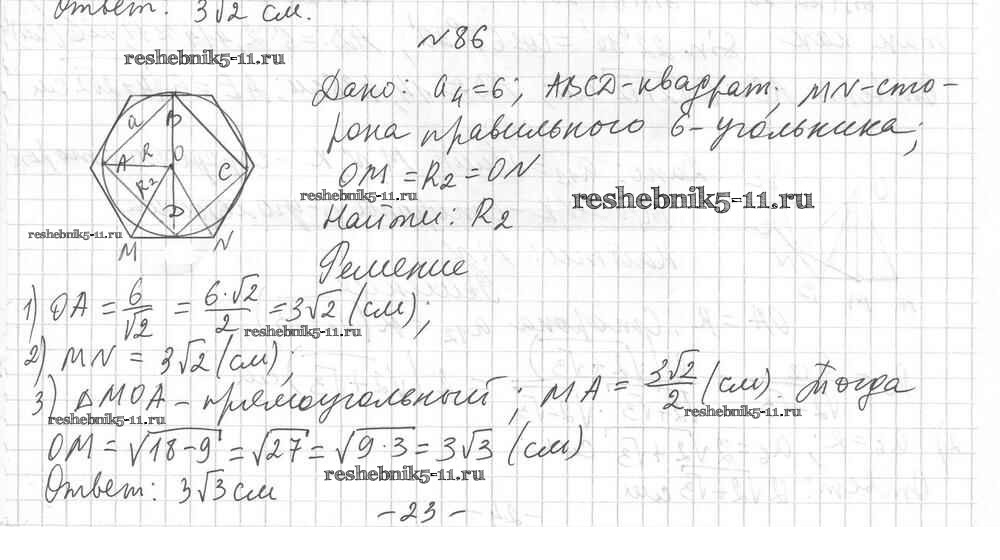 Ответ: 3√2 см.
№86
reshebnik5-11.ru
Дано: a₄=6; ABCD-квадрат; MN-сто-
рона правильного 6-угольника;
OM = R₂ = ON
reshebnik5-11.ru
reshebnik5-11.ru
Найти: R₂
a
B
A
R
O
C
R₂
D
reshebnik5-11.ru
M
N
Решение
1) OA = 6/√2 = 6·√2/2 = 3√2 (см);
reshebnik5-11.ru
2) MN = 3√2 (см);
3) △MOA - прямоугольный. MA = 3√2/2 (см). Тогда
reshebnik5-11.ru
reshebnik5-11.ru
OM = √18-9 = √27 = √9·3 = 3√3 (см)
reshebnik5-11.ru
Ответ: 3√3 см
-23-